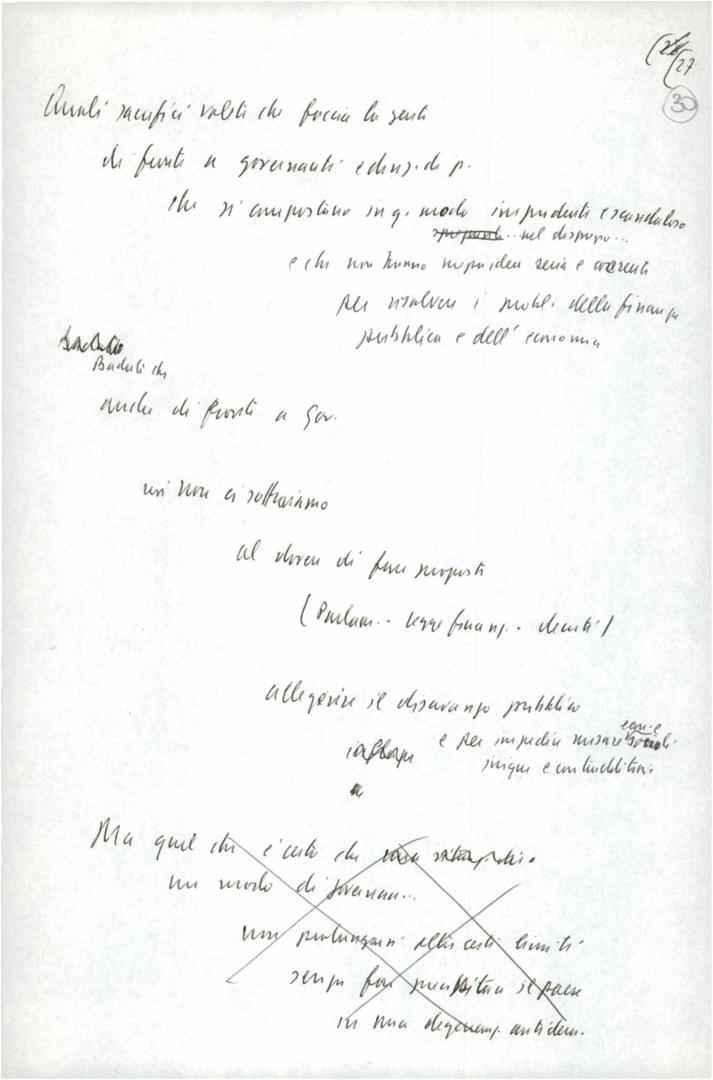 27
30
Quali sacrifici volete che faccia la gente
di fronte a governanti e dirig. di p.
che si comportano in q. modo impudente e scandaloso
... nel disprezzo...
e che non hanno nessuna idea seria e coerente
per risolvere i probl. della finanza
pubblica e dell'economia
Badate che
anche di fronte a Gov.
noi non ci sottraiamo
al dovere di fare proposte
(Parlam.. legge finanz.. decreti)
alleggerire il disavanzo pubblico
e per impedire misure econ. e sociali
inique e contradditorie
Ma quel che è certo che
un modo di governare...
non prolungarsi oltre certi limiti
senza far precipitare il paese
in una degeneraz. antidem.